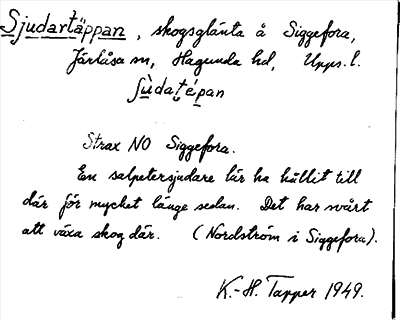 Sjudartäppan, skogsglänta å Siggefora,
Järlåsa sn, Hagunda hd, Upps. l.
ʃùdatépan
Strax NO Siggefora.
En salpetersjudare lär ha hållit till
där för mycket länge sedan. Det har svårt
att växa skog där. (Nordström i Siggefora).
K.-H. Tapper 1949.